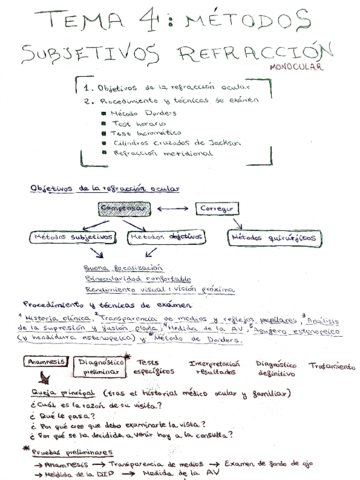 TEMA 4: MÉTODOS
SUBJETIVOS REFRACCIÓN
MONOCULAR
1. Objetivos de la refracción ocular
2. Procedimiento y técnicas de exámen
Método Donders
Test horario
Test bicromático
Cilindros cruzados de Jackson
Refracción meridional
Objetivos de la refracción ocular
Compensar
Corregir
Métodos subjetivos
Métodos objetivos
Métodos quirúrgicos
Buena focalización
Binocularidad confortable
Rendimiento visual: visión próxima
Procedimiento y técnicas de exámen
Historia clínica, Transparencia de medios y reflejos pupilares, Análisis
de la supresión y fusión plana, Medida de la AV, Agujero estenopeico
(y hendidura estenopeica) y Método de Donders.
Anamnesis
Diagnóstico preliminar
Tests específicos
Interpretación resultados
Diagnóstico definitivo
Tratamiento
Queja principal (tras el historial médico ocular y familiar)
¿Cuál es la razón de su visita?
¿Qué le pasa?
¿Por qué cree que debo examinarle la vista?
¿Por qué se ha decidido a venir hoy a la consulta?
* Pruebas preliminares
→ Anamnesis → Transparencia de medios → Examen de fondo de ojo
→ Medida de la DIP → Medida de la AV